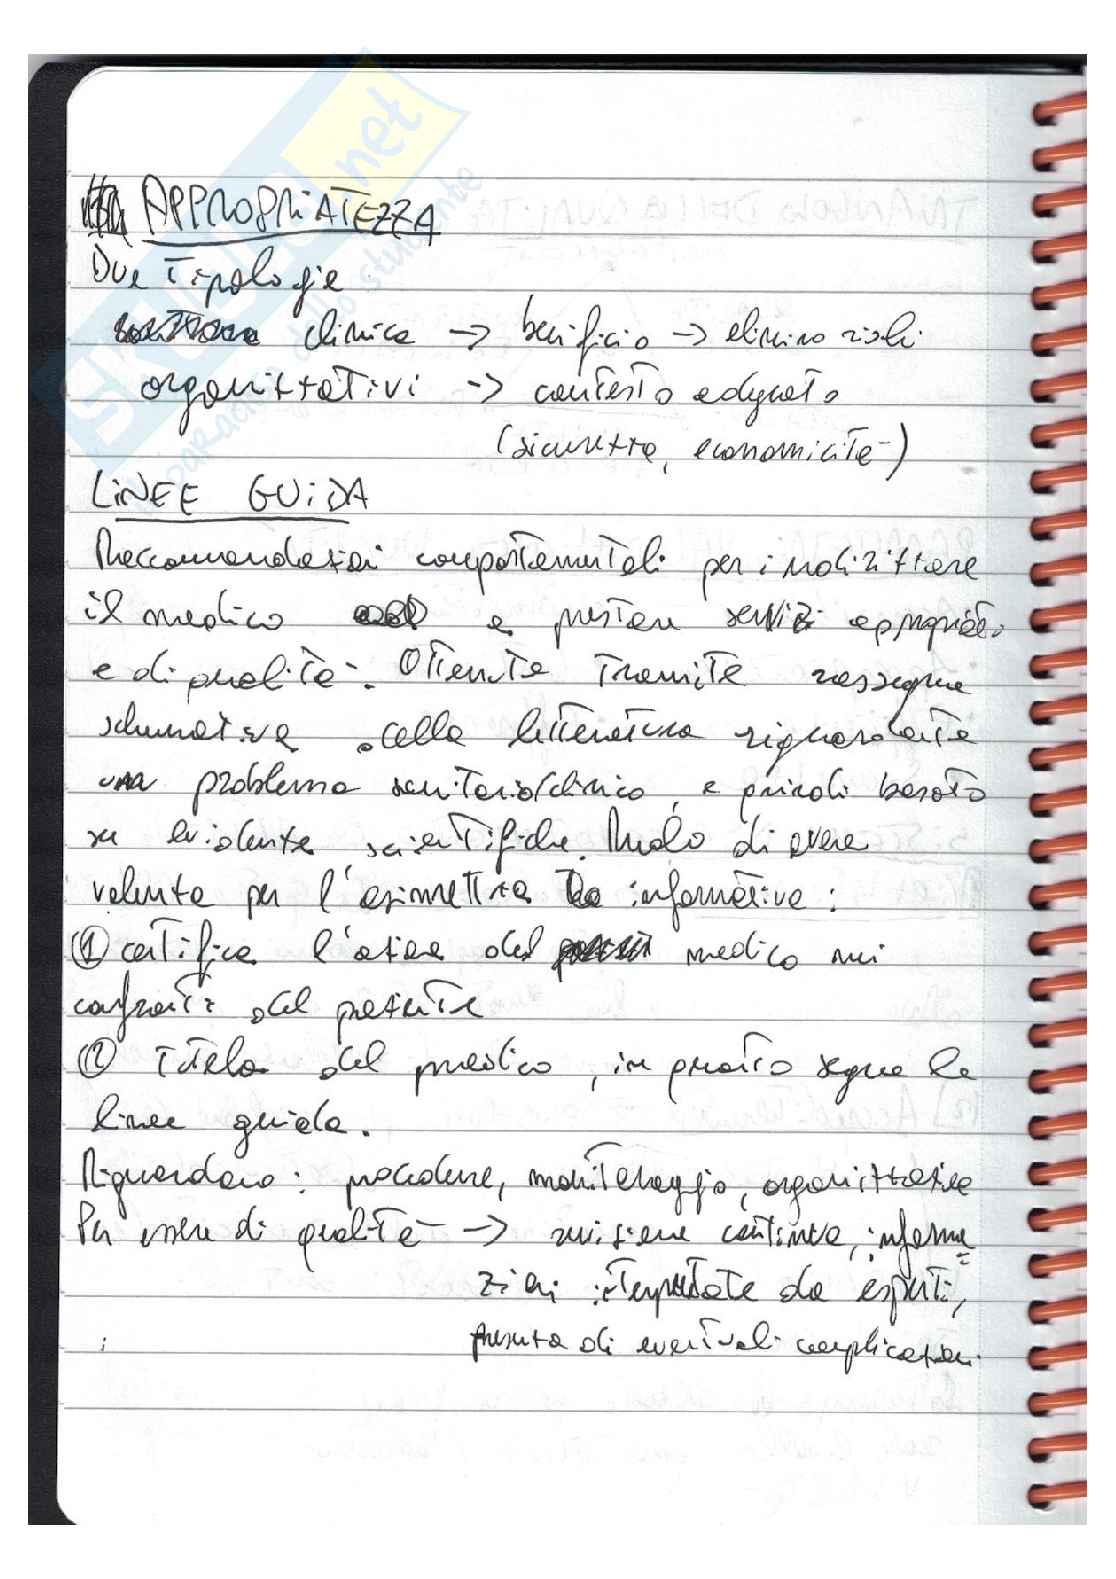 APPROPRIATEZZA
Due Tipologie
clinica -> beneficio -> elimino rischi
organizzativi -> contesto adeguato
(sicurezza, economicità)
LINEE GUIDA
Raccomandazioni comportamentali per indirizzare
il medico a prestare servizi appropriati
e di qualità. Ottenute Tramite rassegne
della letteratura riguardante
una problema sanitario/clinico, e basato
su evidenze scientifiche. Modo di avere
valenza per l'asimmetria informativa:
① certifica l'azione del medico nei
confronti del paziente
② Tutela del medico, in quanto segue le
linee guida.
Riguardano: procedure, monitoraggio, organizzazione
Per essere di qualità -> revisione continua, informa
zioni interpretate da esperti,
presenza di eventuali complicazioni.
Skuola.net